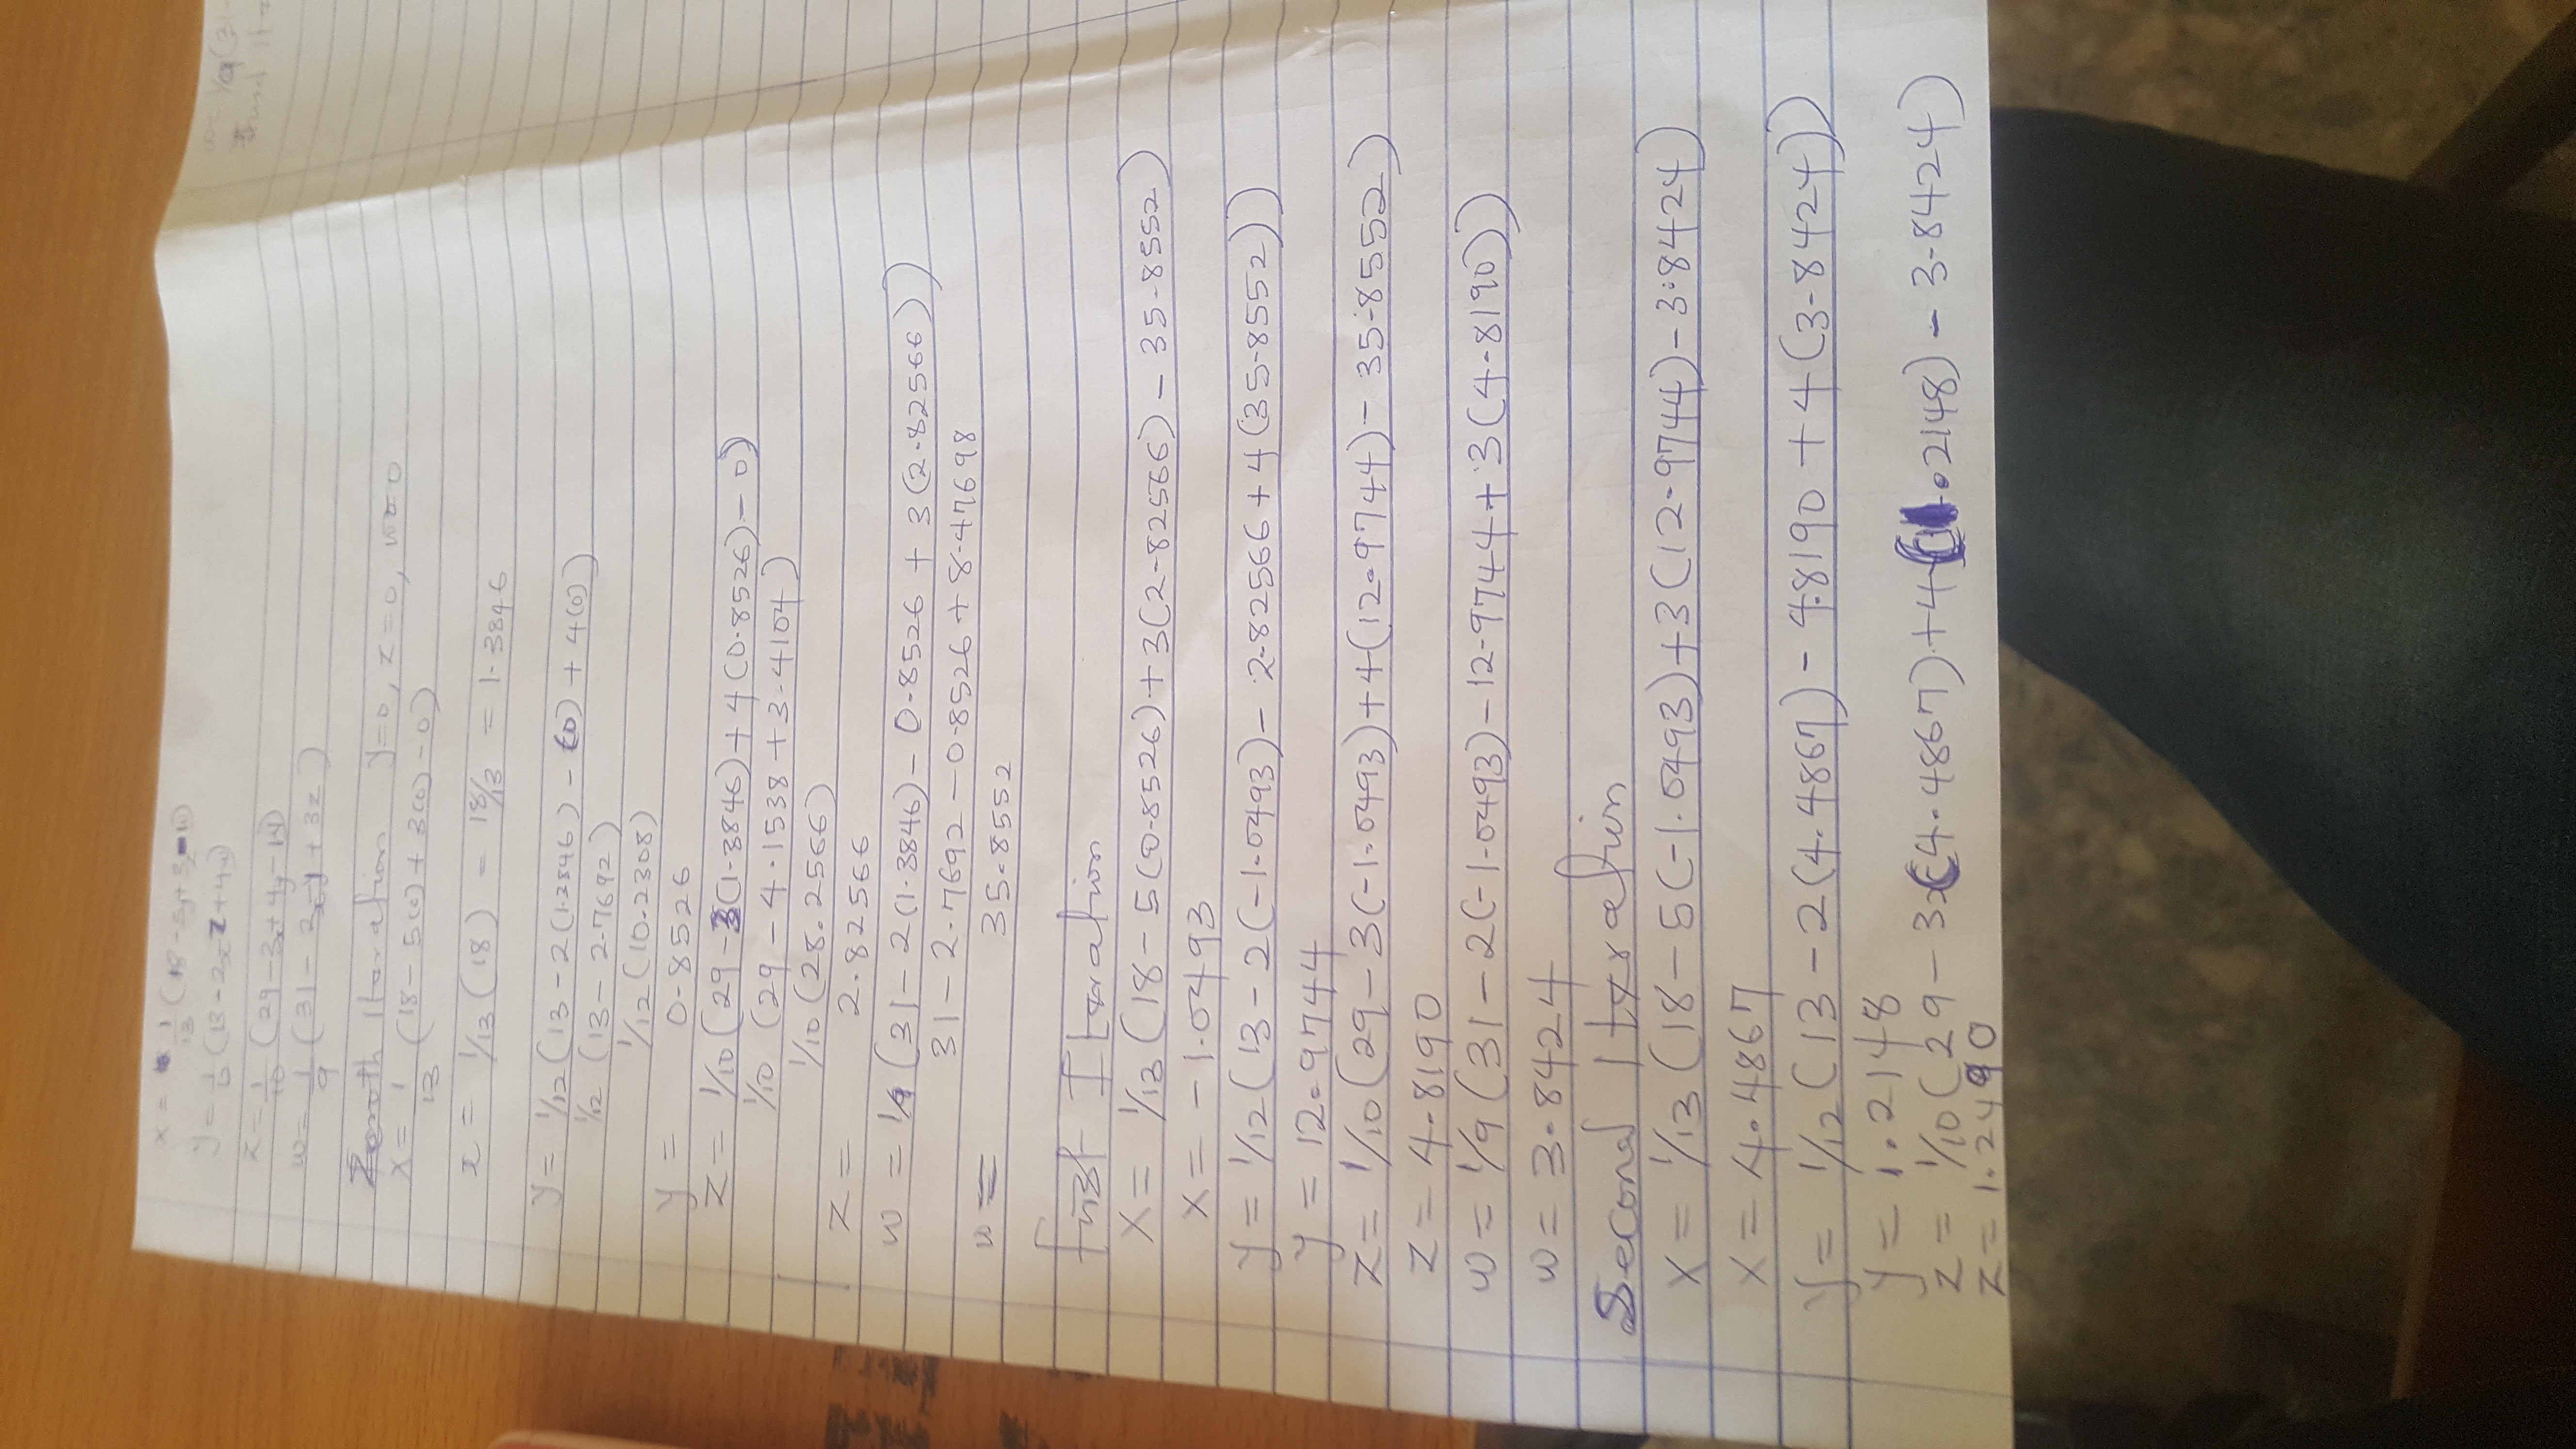 x = 1/13 (18 - 5y + 3z - w)
y = 1/12 (13 - 2x - z + 4w)
z = 1/10 (29 - 3x + 4y - w)
w = 1/9 (31 - 2x - y + 3z)
Zeroth Iteration y=0, z=0, w=0
x = 1/13 (18 - 5(0) + 3(0) - 0)
x = 1/13 (18) = 18/13 = 1.3846
y = 1/12 (13 - 2(1.3846) - (0) + 4(0))
1/12 (13 - 2.7692)
1/12 (10.2308)
y = 0.8526
z = 1/10 (29 - 3(1.3846) + 4(0.8526) - 0)
1/10 (29 - 4.1538 + 3.4104)
1/10 (28.2566)
z = 2.82566
w = 1/9 (31 - 2(1.3846) - 0.8526 + 3(2.82566))
31 - 2.7692 - 0.8526 + 8.47698
w = 35.8552
First Iteration
x = 1/13 (18 - 5(0.8526) + 3(2.82566) - 35.8552)
x = -1.0493
y = 1/12 (13 - 2(-1.0493) - 2.82566 + 4(35.8552))
y = 12.9744
z = 1/10 (29 - 3(-1.0493) + 4(12.9744) - 35.8552)
z = 4.8190
w = 1/9 (31 - 2(-1.0493) - 12.9744 + 3(4.8190))
w = 3.8424
Second Iteration
x = 1/13 (18 - 5(-1.0493) + 3(12.9744) - 3.8424)
x = 4.4867
y = 1/12 (13 - 2(4.4867) - 4.8190 + 4(3.8424))
y = 1.2148
z = 1/10 (29 - 3(4.4867) + 4(1.2148) - 3.8424)
z = 1.2490